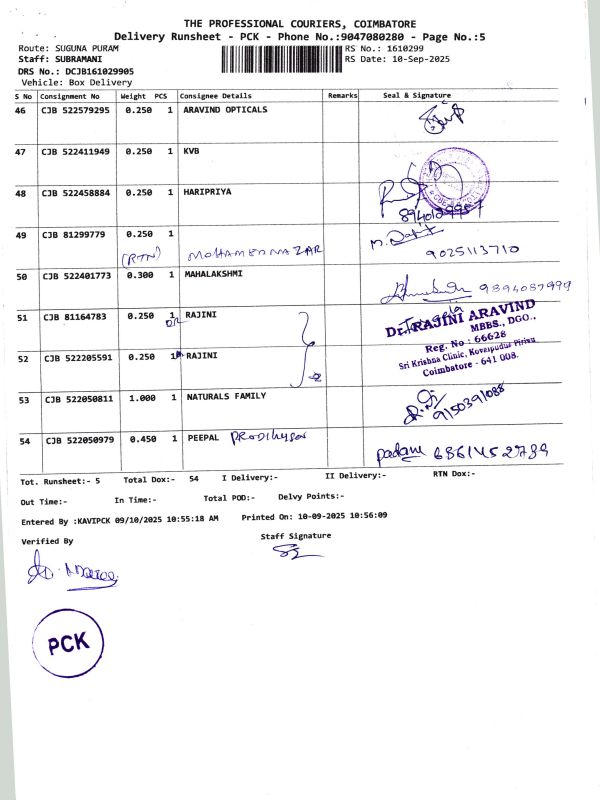 THE PROFESSIONAL COURIERS, COIMBATORE
Delivery Runsheet - PCK - Phone No.:9047080280 - Page No.:5
Route: SUGUNA PURAM
RS No.: 1610299
Staff: SUBRAMANI
RS Date: 10-Sep-2025
DRS No.: DCJB161029905
Vehicle: Box Delivery
S No Consignment No Weight PCS Consignee Details Remarks Seal & Signature
46 CJB 522579295 0.250 1 ARAVIND OPTICALS
47 CJB 522411949 0.250 1 KVB
48 CJB 522458884 0.250 1 HARIPRIYA
49 CJB 81299779 0.250 1
(RTN) MOHAMED NAZAR
9025113710
50 CJB 522401773 0.300 1 MAHALAKSHMI
9894087999
51 CJB 81164783 0.250 1 RAJINI
Dr. RAJINI ARAVIND
MBBS., DGO.,
Reg. No : 66628
Sri Krishna Clinic, Kovaipudur Pirivu
Coimbatore - 641 008.
52 CJB 522205591 0.250 1 RAJINI
53 CJB 522050811 1.000 1 NATURALS FAMILY
9150391088
54 CJB 522050979 0.450 1 PEEPAL
Tot. Runsheet:- 5 Total Dox:- 54 I Delivery:- II Delivery:- RTN Dox:-
Out Time:- In Time:- Total POD:- Delvy Points:-
Entered By :KAVIPCK 09/10/2025 10:55:18 AM Printed On: 10-09-2025 10:56:09
Verified By
Staff Signature
PCK